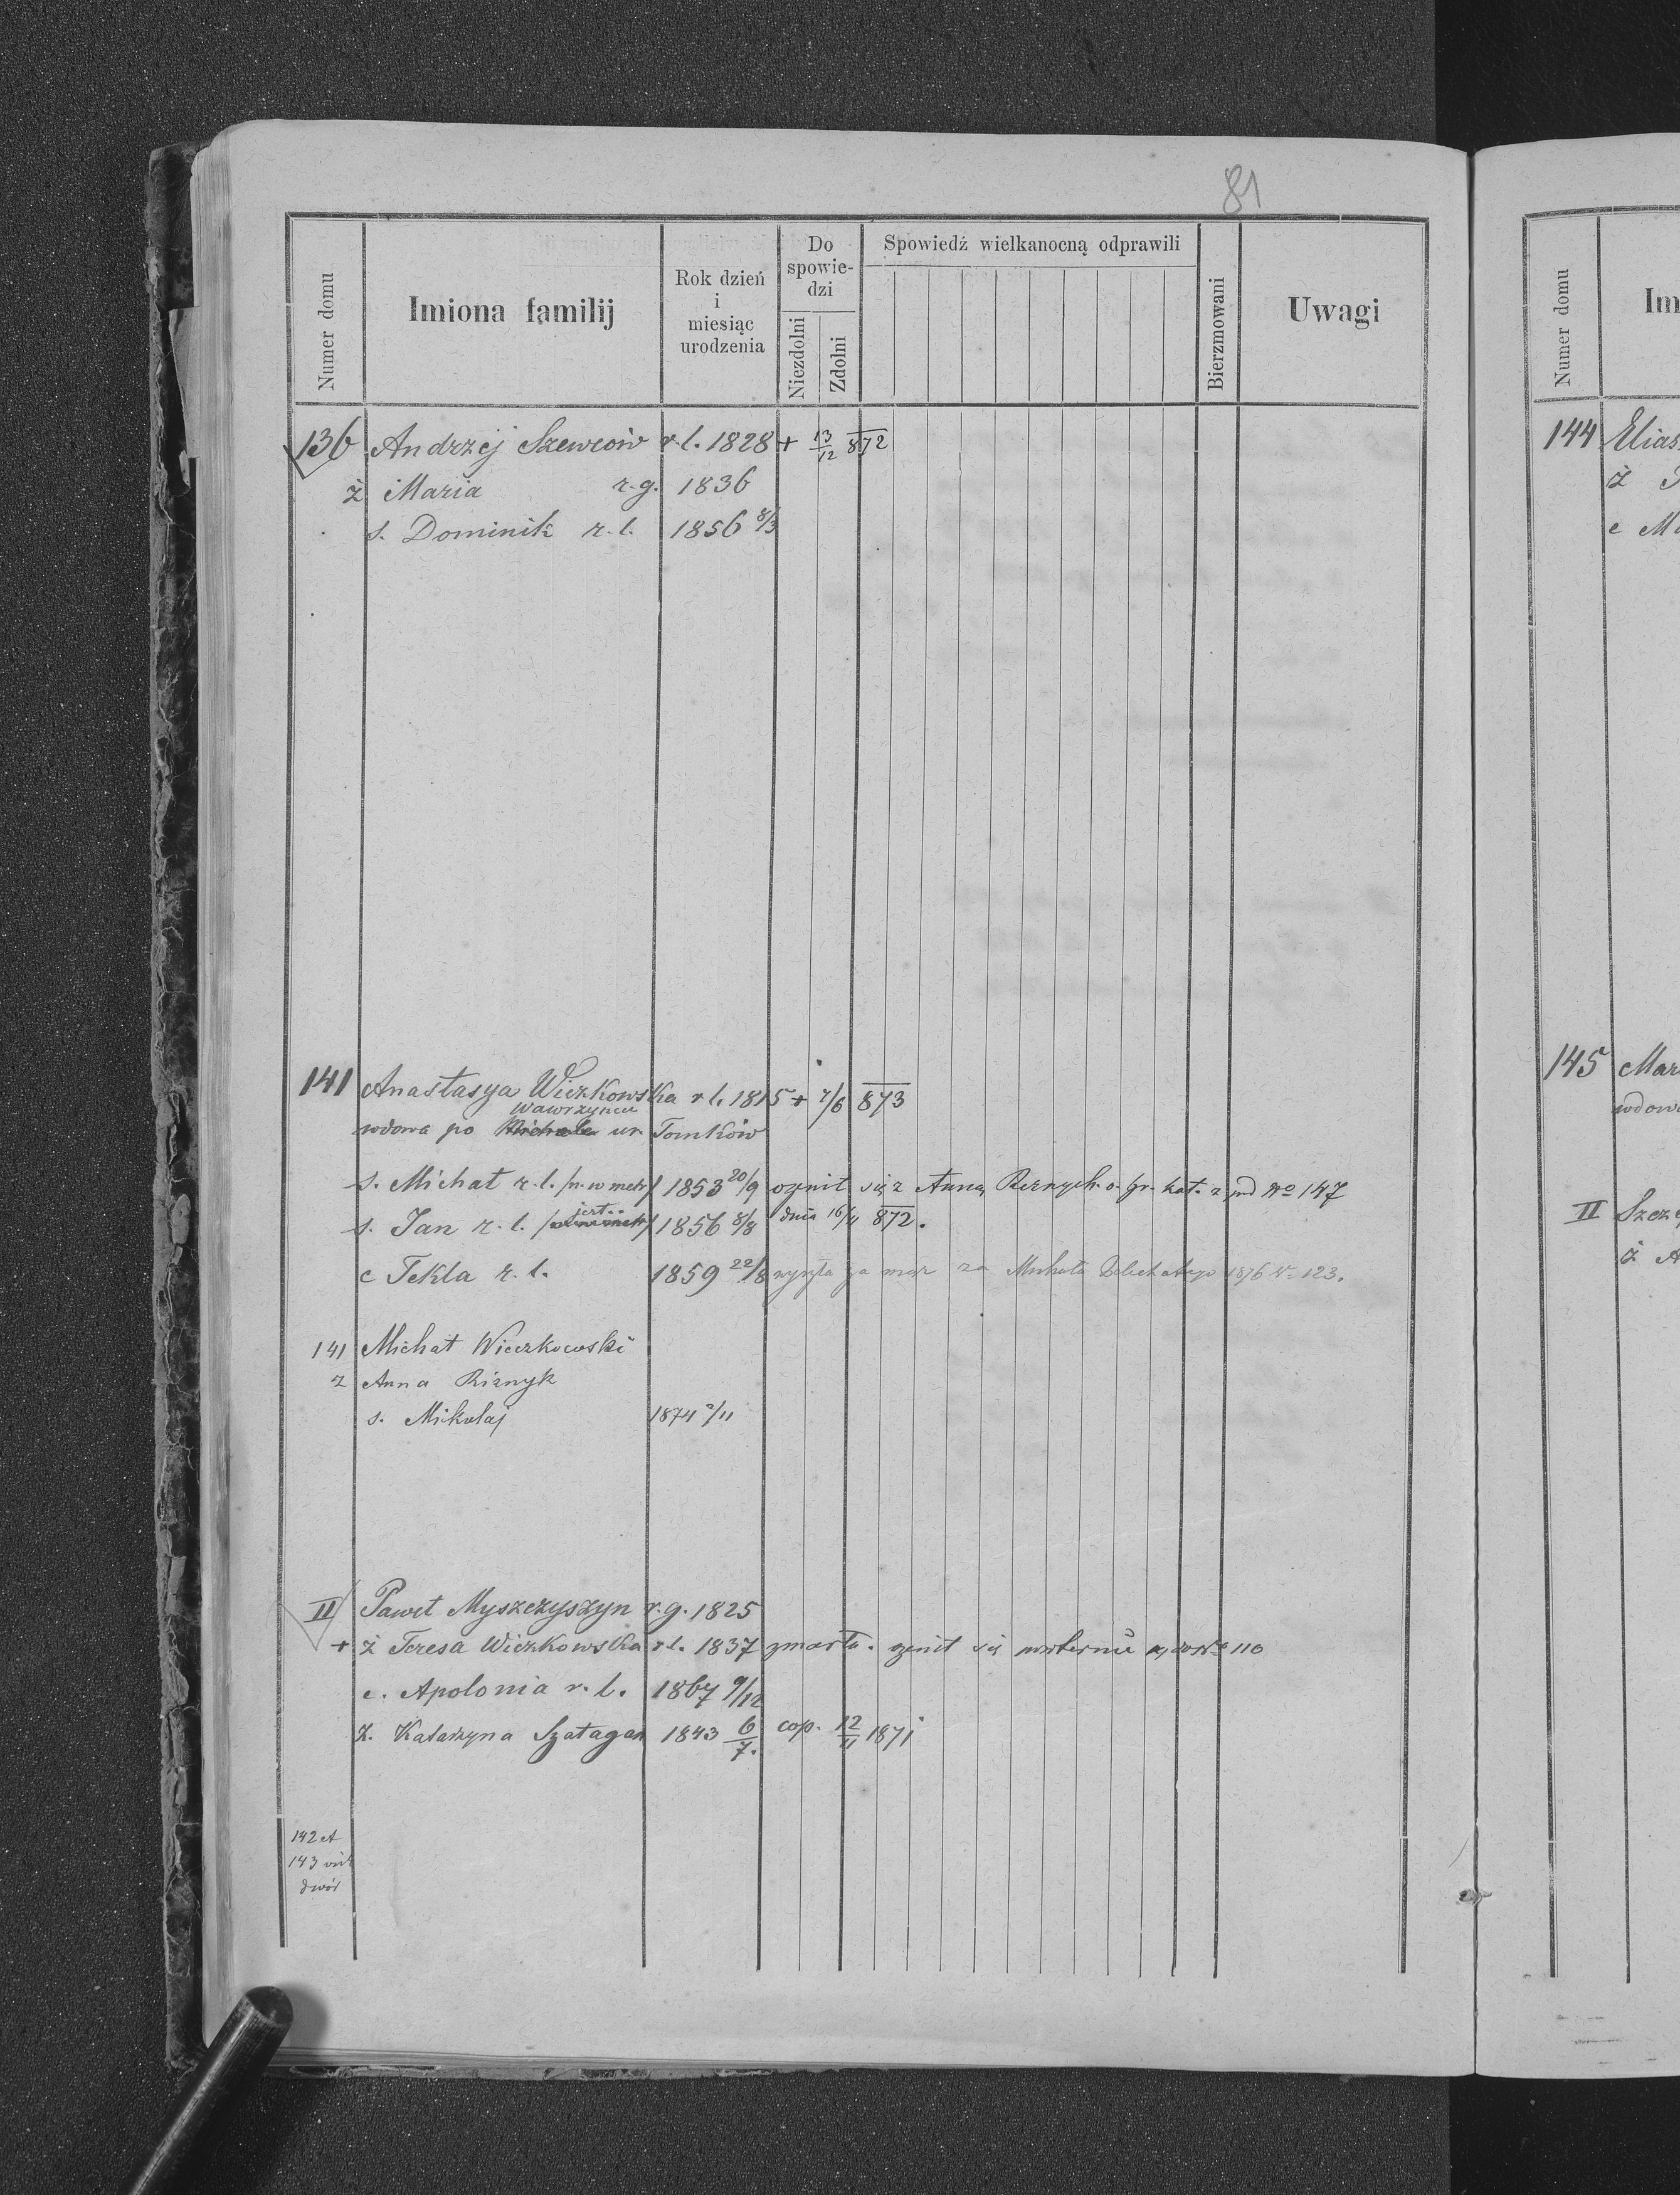 81
Numer domu
Imiona familij
Rok dzień i miesiąc urodzenia
Do spowiedzi
Niezdolni
Zdolni
Spowiedź wielkanocną odprawili
Bierzmowani
Uwagi
136 Andrzej Szewców r.l. 1828 + 13/12 872
ż Maria r.g. 1836
s. Dominik r.l. 1856 8/3
141 Anastasya Wiczkowska r l. 1815 + 7/6 873
Wawrzyńcu
wdowa po Michale ur. Tomków
s. Michał r.l. /n. w metr/ 1853 20/9 ożenił się z Anną o. gr. kat. z pod No 147
jest
s. Jan r.l. 1856 8/8 dnia 16/11 872.
c Tekla r.l. 1859 22/8 wyszła za mąż za Michała 1876 N 123.
141 Michał Wieczkowski
ż Anna Riznyk
s. Mikołaj 1874 2/11
II Paweł Myszczyszyn r.g. 1825
+ ż Teresa Wiczkowska r l. 1837 zmarła. żenił się No 110
c. Apolonia r.l. 1867 9/12
ż. Katarzyna Szatagan 1843 6/7. cop. 12/11 1871
142 et
143
dwór
Numer domu
Im
144 Elias
ż
c Ma
145 Mar
wdowa
II Szcze
ż A